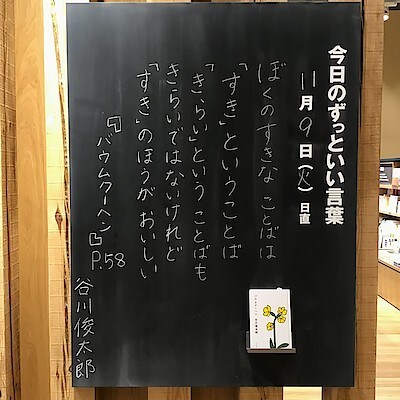 今日のずっといい言葉
11月9日(火)日直
ぼくのすきな ことばは
「すき」ということば
「きらい」という ことばも
きらいではないけれど
「すき」のほうが おいしい
『バウムクーヘン』P.58
谷川俊太郎